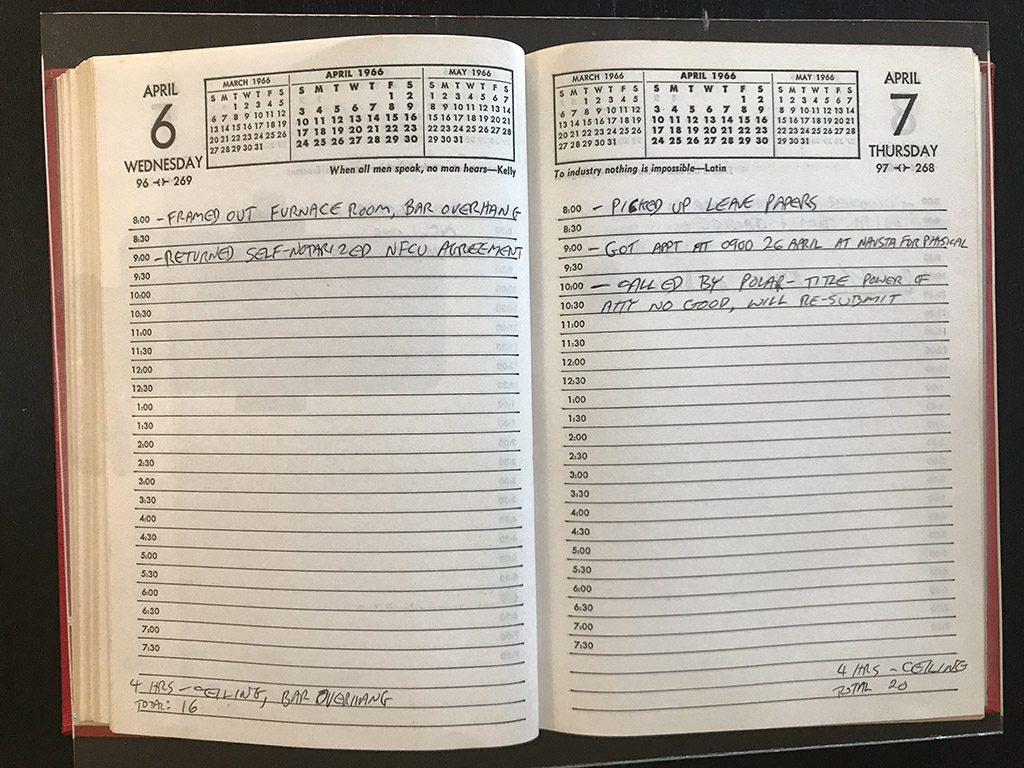 APRIL
6
WEDNESDAY
96 269
MARCH 1966
S M T W T F S
1 2 3 4 5
6 7 8 9 10 11 12
13 14 15 16 17 18 19
20 21 22 23 24 25 26
27 28 29 30 31
APRIL 1966
S M T W T F S
1 2
3 4 5 6 7 8 9
10 11 12 13 14 15 16
17 18 19 20 21 22 23
24 25 26 27 28 29 30
MAY 1966
S M T W T F S
1 2 3 4 5 6 7
8 9 10 11 12 13 14
15 16 17 18 19 20 21
22 23 24 25 26 27 28
29 30 31
When all men speak, no man hears—Kelly
8:00 - FRAMED OUT FURNACE ROOM, BAR OVERHANG
8:30
9:00 - RETURNED SELF-NOTARIZED NFCU AGREEMENT
9:30
10:00
10:30
11:00
11:30
12:00
12:30
1:00
1:30
2:00
2:30
3:00
3:30
4:00
4:30
5:00
5:30
6:00
6:30
7:00
7:30
4 HRS - CEILING, BAR OVERHANG
TOTAL: 16
MARCH 1966
S M T W T F S
1 2 3 4 5
6 7 8 9 10 11 12
13 14 15 16 17 18 19
20 21 22 23 24 25 26
27 28 29 30 31
APRIL 1966
S M T W T F S
1 2
3 4 5 6 7 8 9
10 11 12 13 14 15 16
17 18 19 20 21 22 23
24 25 26 27 28 29 30
MAY 1966
S M T W T F S
1 2 3 4 5 6 7
8 9 10 11 12 13 14
15 16 17 18 19 20 21
22 23 24 25 26 27 28
29 30 31
APRIL
7
THURSDAY
97 268
To industry nothing is impossible—Latin
8:00 - PICKED UP LEAVE PAPERS
8:30
9:00 - GOT APPT AT 0900 26 APRIL AT NAVSTA FOR PHYSICAL
9:30
10:00 - CALLED BY POLAR - TITLE POWER OF
10:30 ATTY NO GOOD, WILL RE-SUBMIT
11:00
11:30
12:00
12:30
1:00
1:30
2:00
2:30
3:00
3:30
4:00
4:30
5:00
5:30
6:00
6:30
7:00
7:30
4 HRS - CEILING
TOTAL 20